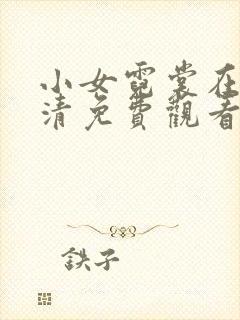 小女霓裳在
清免費觀看
鉄子